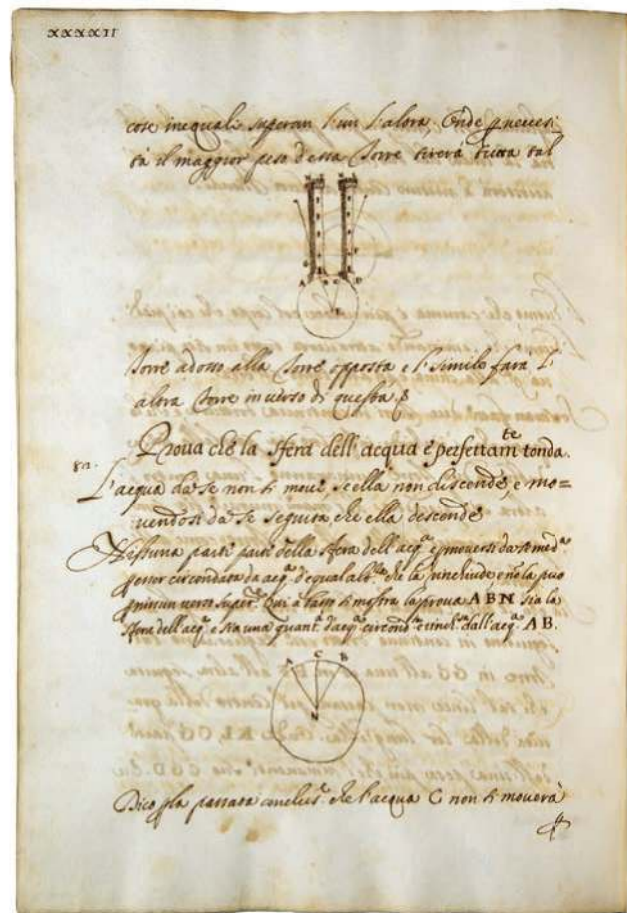 XXXXII
cose inequali superan l'un l'altra; Onde p necessi=
tà il maggior peso d'essa Torre tirerà tutta tal
A C D
Torre adosso alla Torre opposta e l' simile farà l'
altra Torre in verso di questa
Prova che la sfera dell' acqua è perfettam.te tonda.
82.
L'acqua da se non si move, se ella non discende, e mo=
vendosi da se seguita, che ella descende
Nissuna parti della sfera dell' acq.a moversi da se med.a
p esser circondata da acq.a d'equal alt.a che la rinchiude, e no la può
Qui a basso si mostra la prova A B N sia la
sfera dell' acq.a e sia una quant.a d'acq.a dall' acq.a A B.
A C B
N
Dico p la passata conclus.e che l'acqua C non si moverà